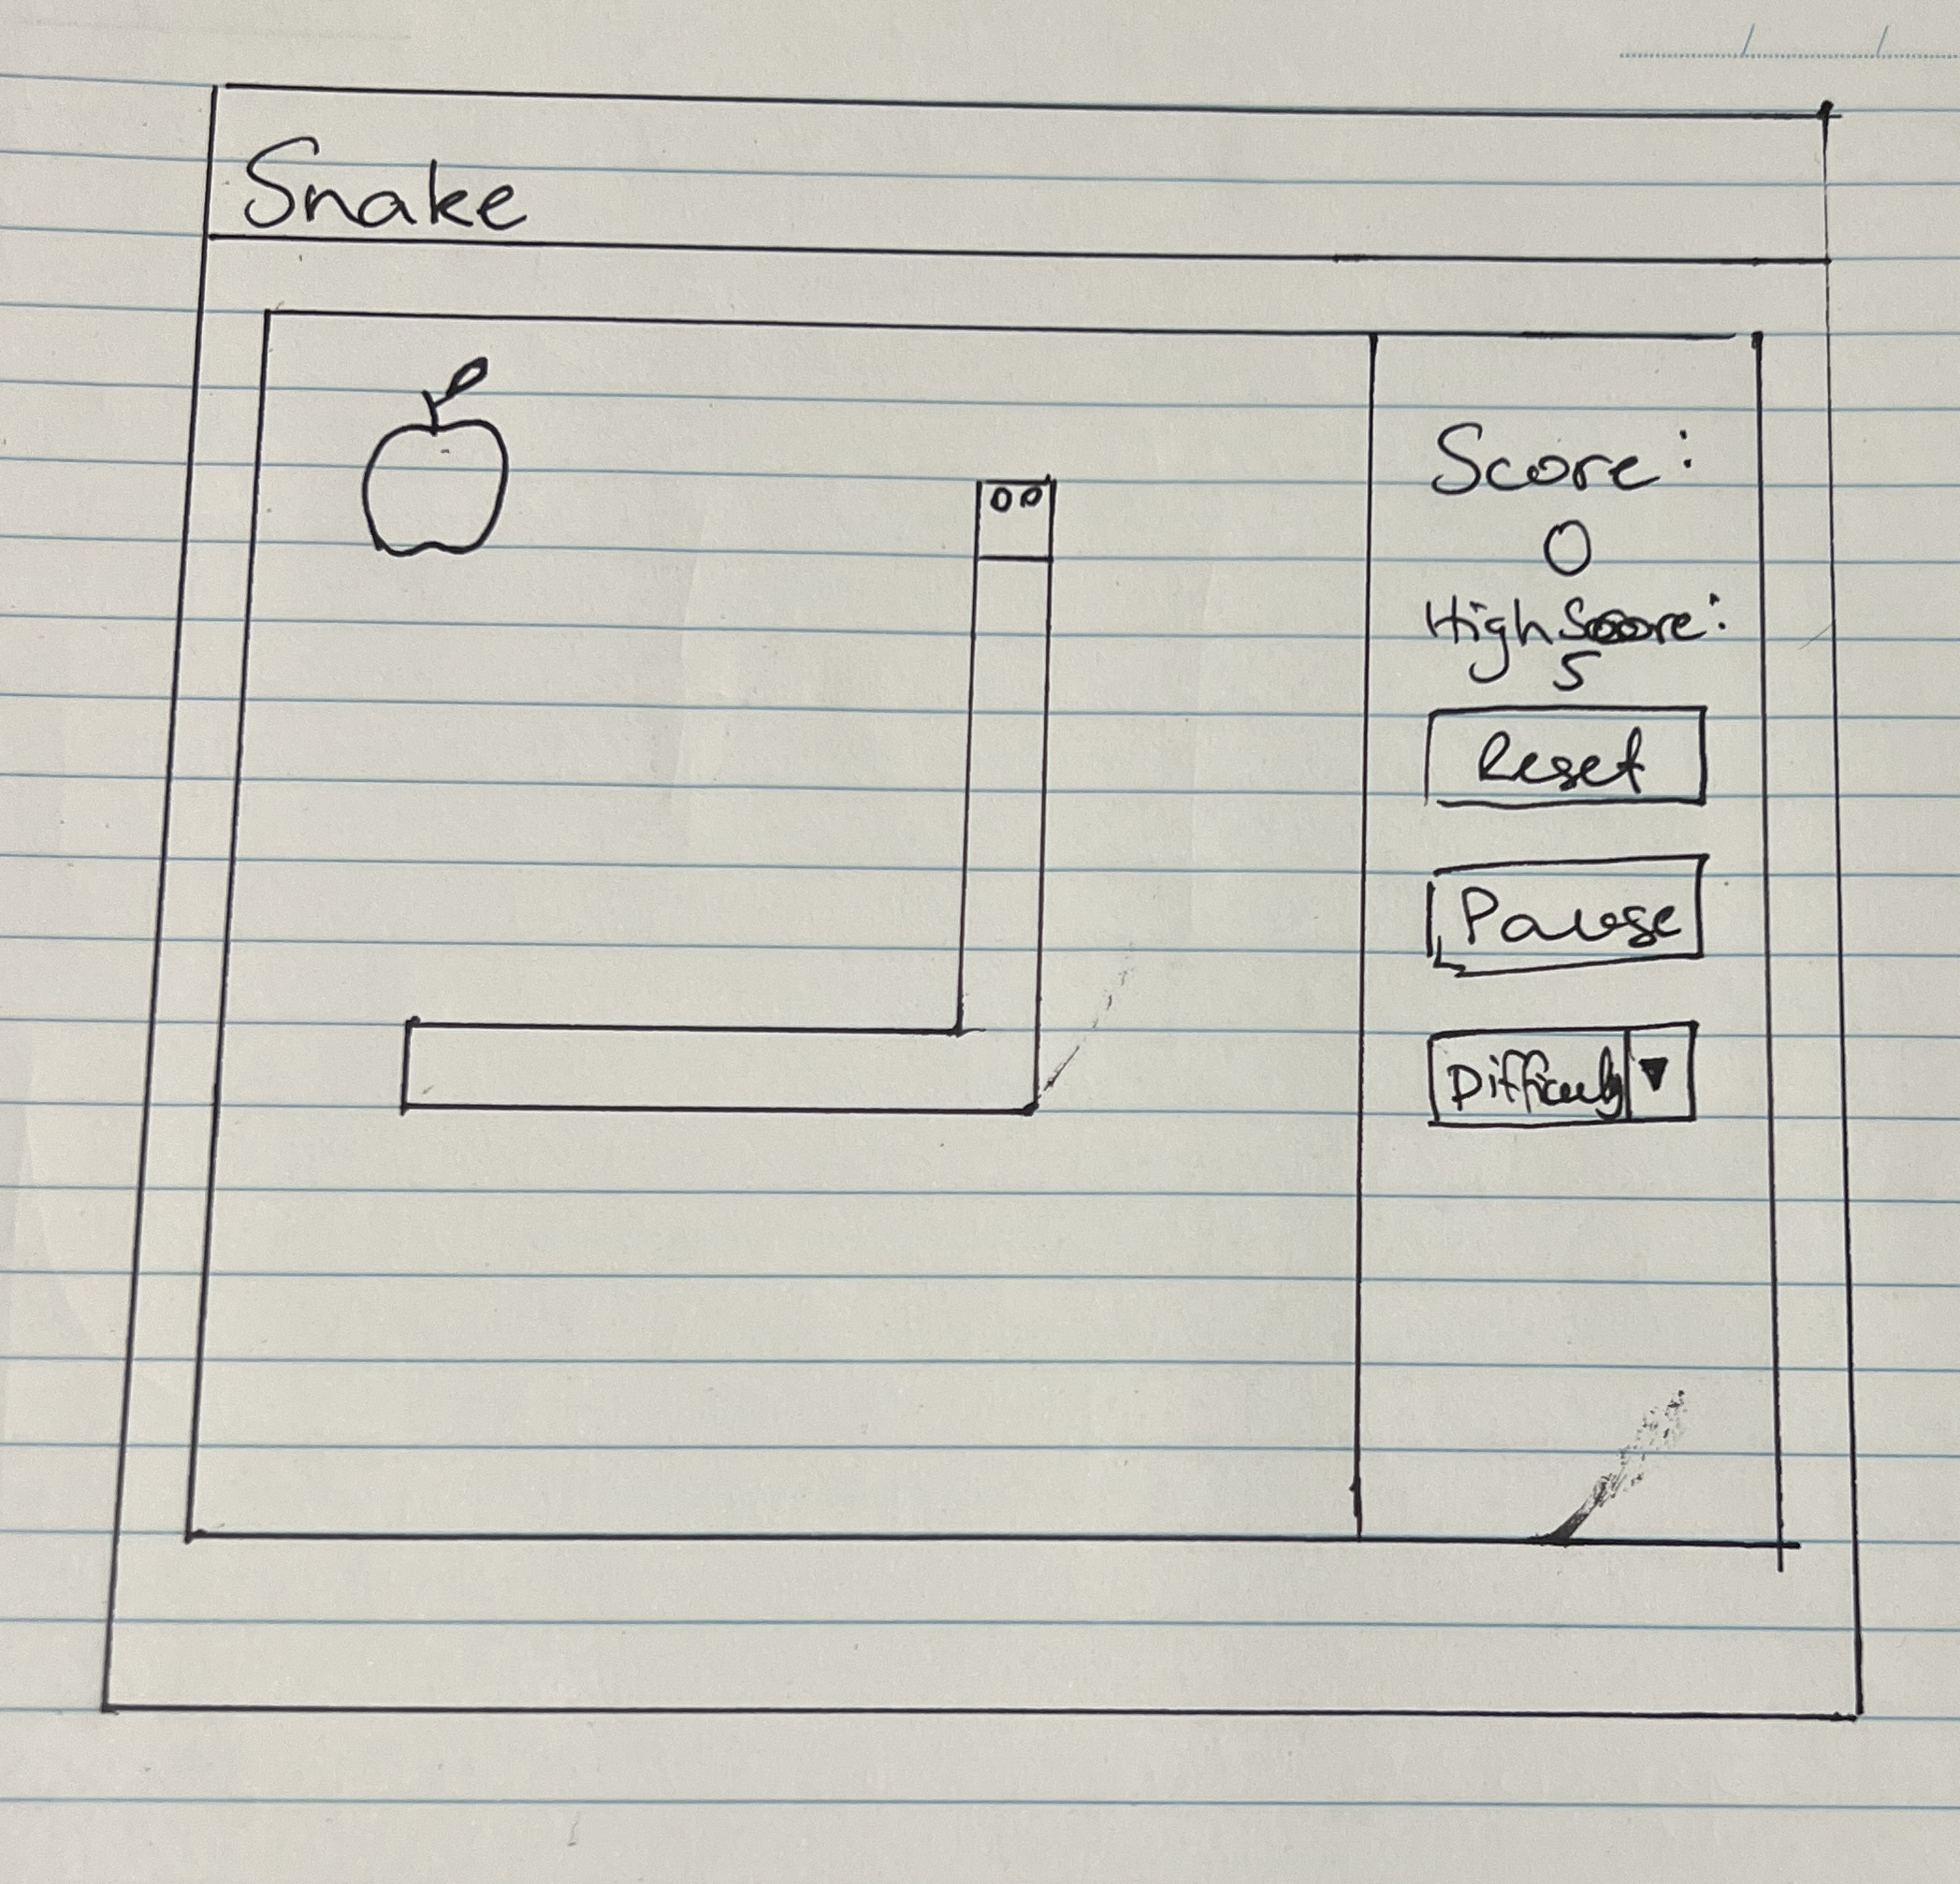 Snake
Score:
0
High Score:
5
Reset
Pause
Difficulty